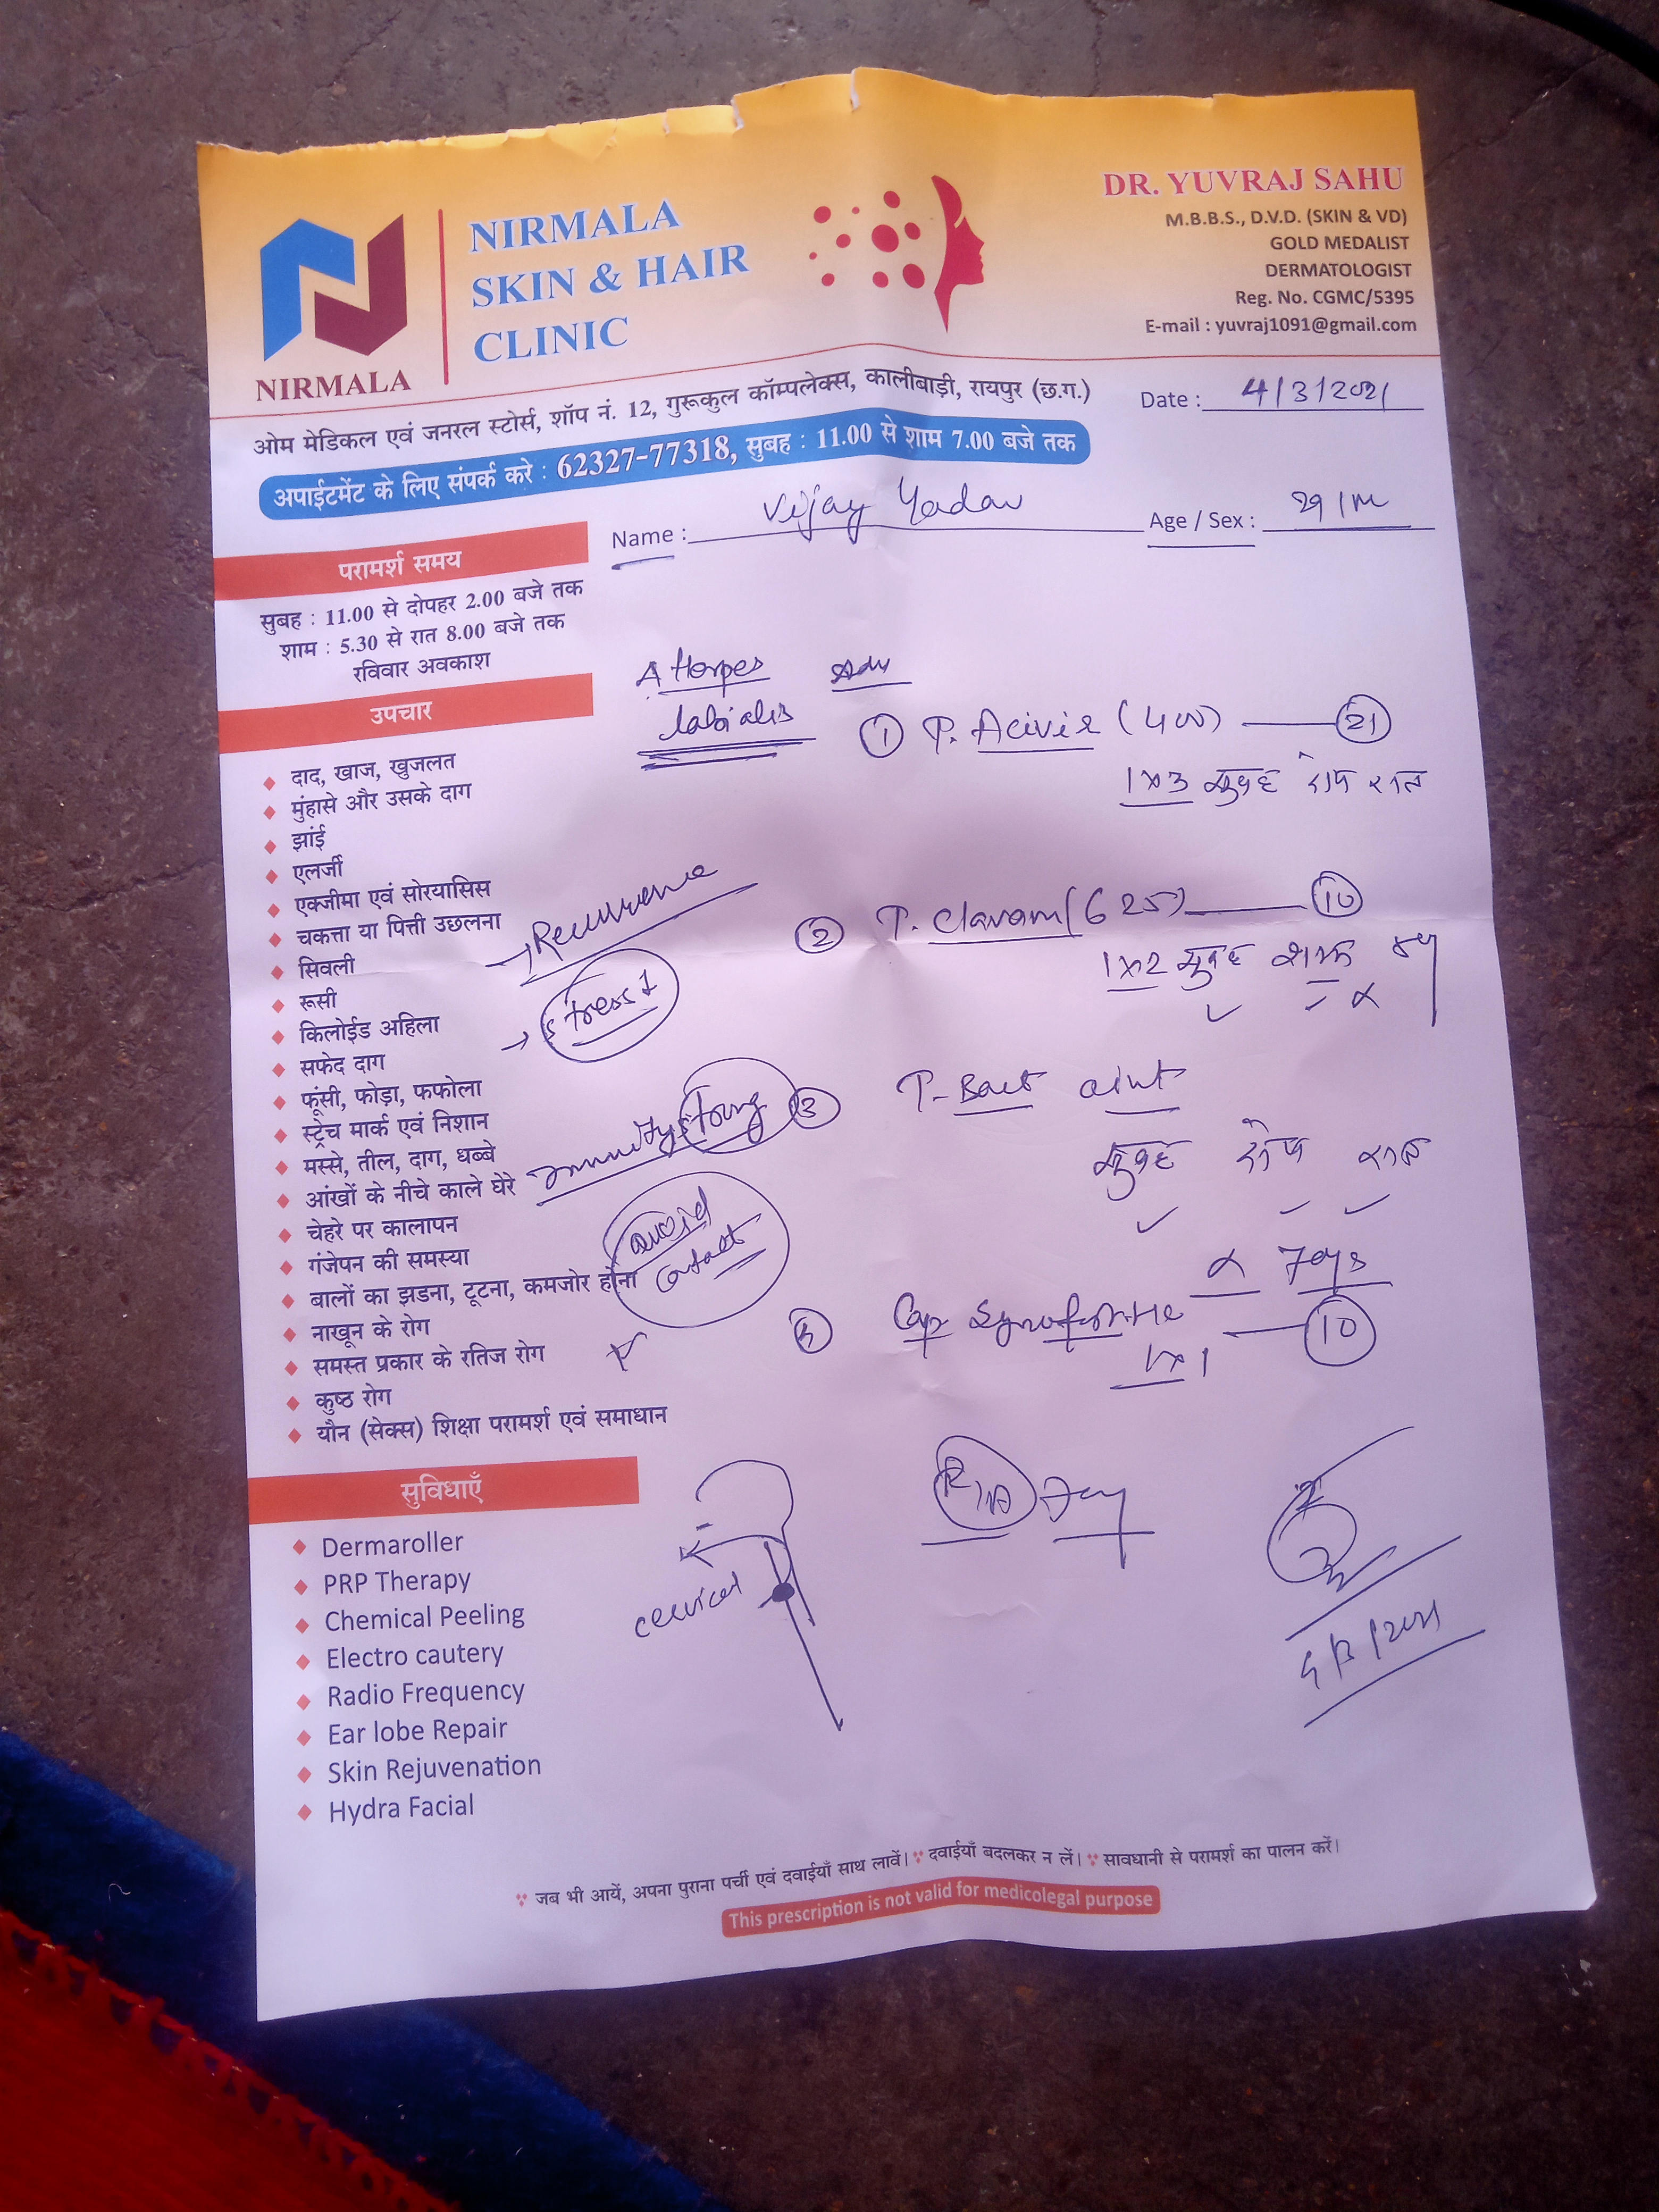 NIRMALA
NIRMALA
SKIN & HAIR
CLINIC
DR. YUVRAJ SAHU
M.B.B.S., D.V.D. (SKIN & VD)
GOLD MEDALIST
DERMATOLOGIST
Reg. No. CGMC/5395
E-mail : yuvraj1091@gmail.com
ओम मेडिकल एवं जनरल स्टोर्स, शॉप नं. 12, गुरूकुल कॉम्पलेक्स, कालीबाड़ी, रायपुर (छ.ग.)
Date : 4/3/2021
अपाईटमेंट के लिए संपर्क करे : 62327-77318, सुबह : 11.00 से शाम 7.00 बजे तक
Name : Vijay Yadav
Age / Sex : 29/m
परामर्श समय
सुबह : 11.00 से दोपहर 2.00 बजे तक
शाम : 5.30 से रात 8.00 बजे तक
रविवार अवकाश
उपचार
दाद, खाज, खुजलत
मुंहासे और उसके दाग
झांई
एलर्जी
एक्जीमा एवं सोरयासिस
चकत्ता या पित्ती उछलना
सिवली
रूसी
किलोईड अहिला
सफेद दाग
फूंसी, फोड़ा, फफोला
स्ट्रेच मार्क एवं निशान
मस्से, तील, दाग, धब्बे
आंखों के नीचे काले घेरे
चेहरे पर कालापन
गंजेपन की समस्या
बालों का झडना, टूटना, कमजोर होना
नाखून के रोग
समस्त प्रकार के रतिज रोग
कुष्ठ रोग
यौन (सेक्स) शिक्षा परामर्श एवं समाधान
सुविधाएँ
Dermaroller
PRP Therapy
Chemical Peeling
Electro cautery
Radio Frequency
Ear lobe Repair
Skin Rejuvenation
Hydra Facial
Herpes
labialis
Adv
→ Recurrence
→ stress
immunity strong
avoid
contact
cervical
① T. Acivir (400) — 21
1x3 सुबह दोप रात
② T. Clavam (625) — 10
1x2 सुबह शाम
③ T-Bact oint
सुबह दोप रात
x 7 days
Cap — 10
1x1
4/3/2021
जब भी आयें, अपना पुराना पर्ची एवं दवाईयाँ साथ लावें। दवाईयाँ बदलकर न लें। सावधानी से परामर्श का पालन करें।
This prescription is not valid for medicolegal purpose